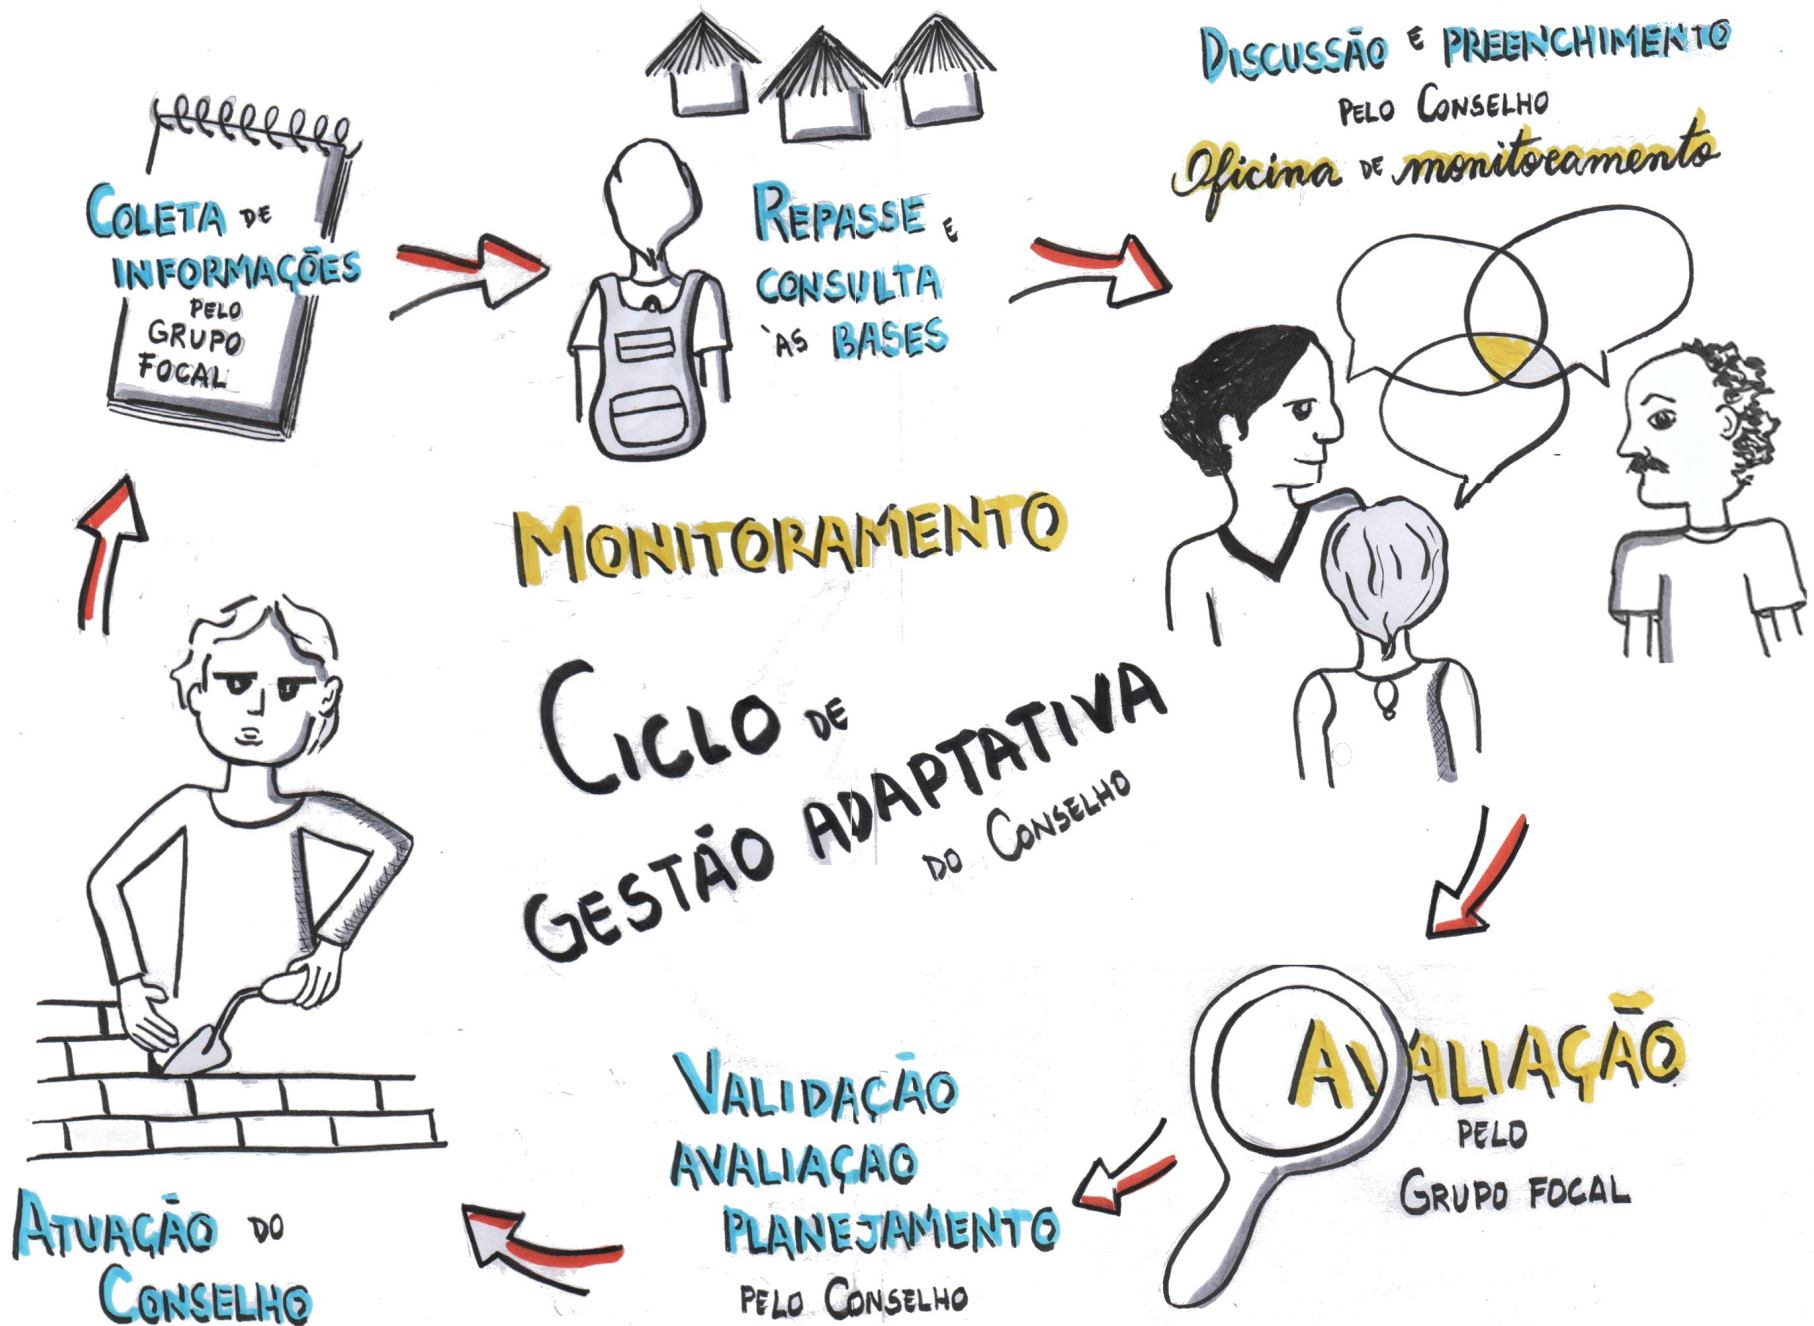 COLETA DE
INFORMAÇÕES
PELO
GRUPO
FOCAL
REPASSE E
CONSULTA
ÀS BASES
DISCUSSÃO E PREENCHIMENTO
PELO CONSELHO
Oficina DE monitoramento
MONITORAMENTO
CICLO DE
GESTÃO ADAPTATIVA
DO CONSELHO
AVALIAÇÃO
PELO
GRUPO FOCAL
VALIDAÇÃO
AVALIAÇAO
PLANEJAMENTO
PELO CONSELHO
ATUAÇÃO DO
CONSELHO